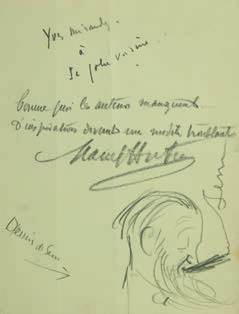 Yves Mirande
à
sa jolie voisine!
Comme quoi les auteurs manquent
D'inspiration devant un modèle troublant
Sem
Dessin de Sem